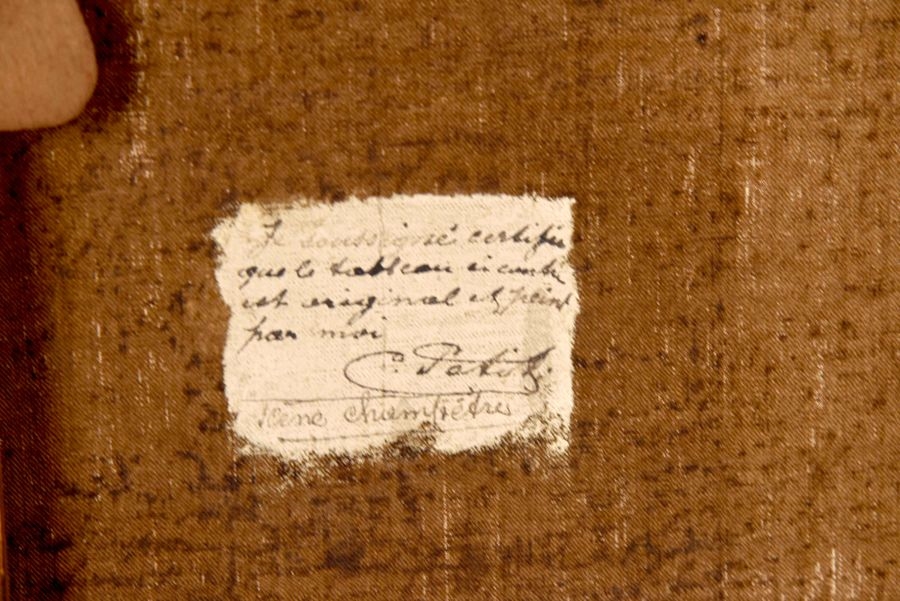 Je soussigné certifie
que le tableau ci contre
est original et peint
par moi
C.
Scène champêtre